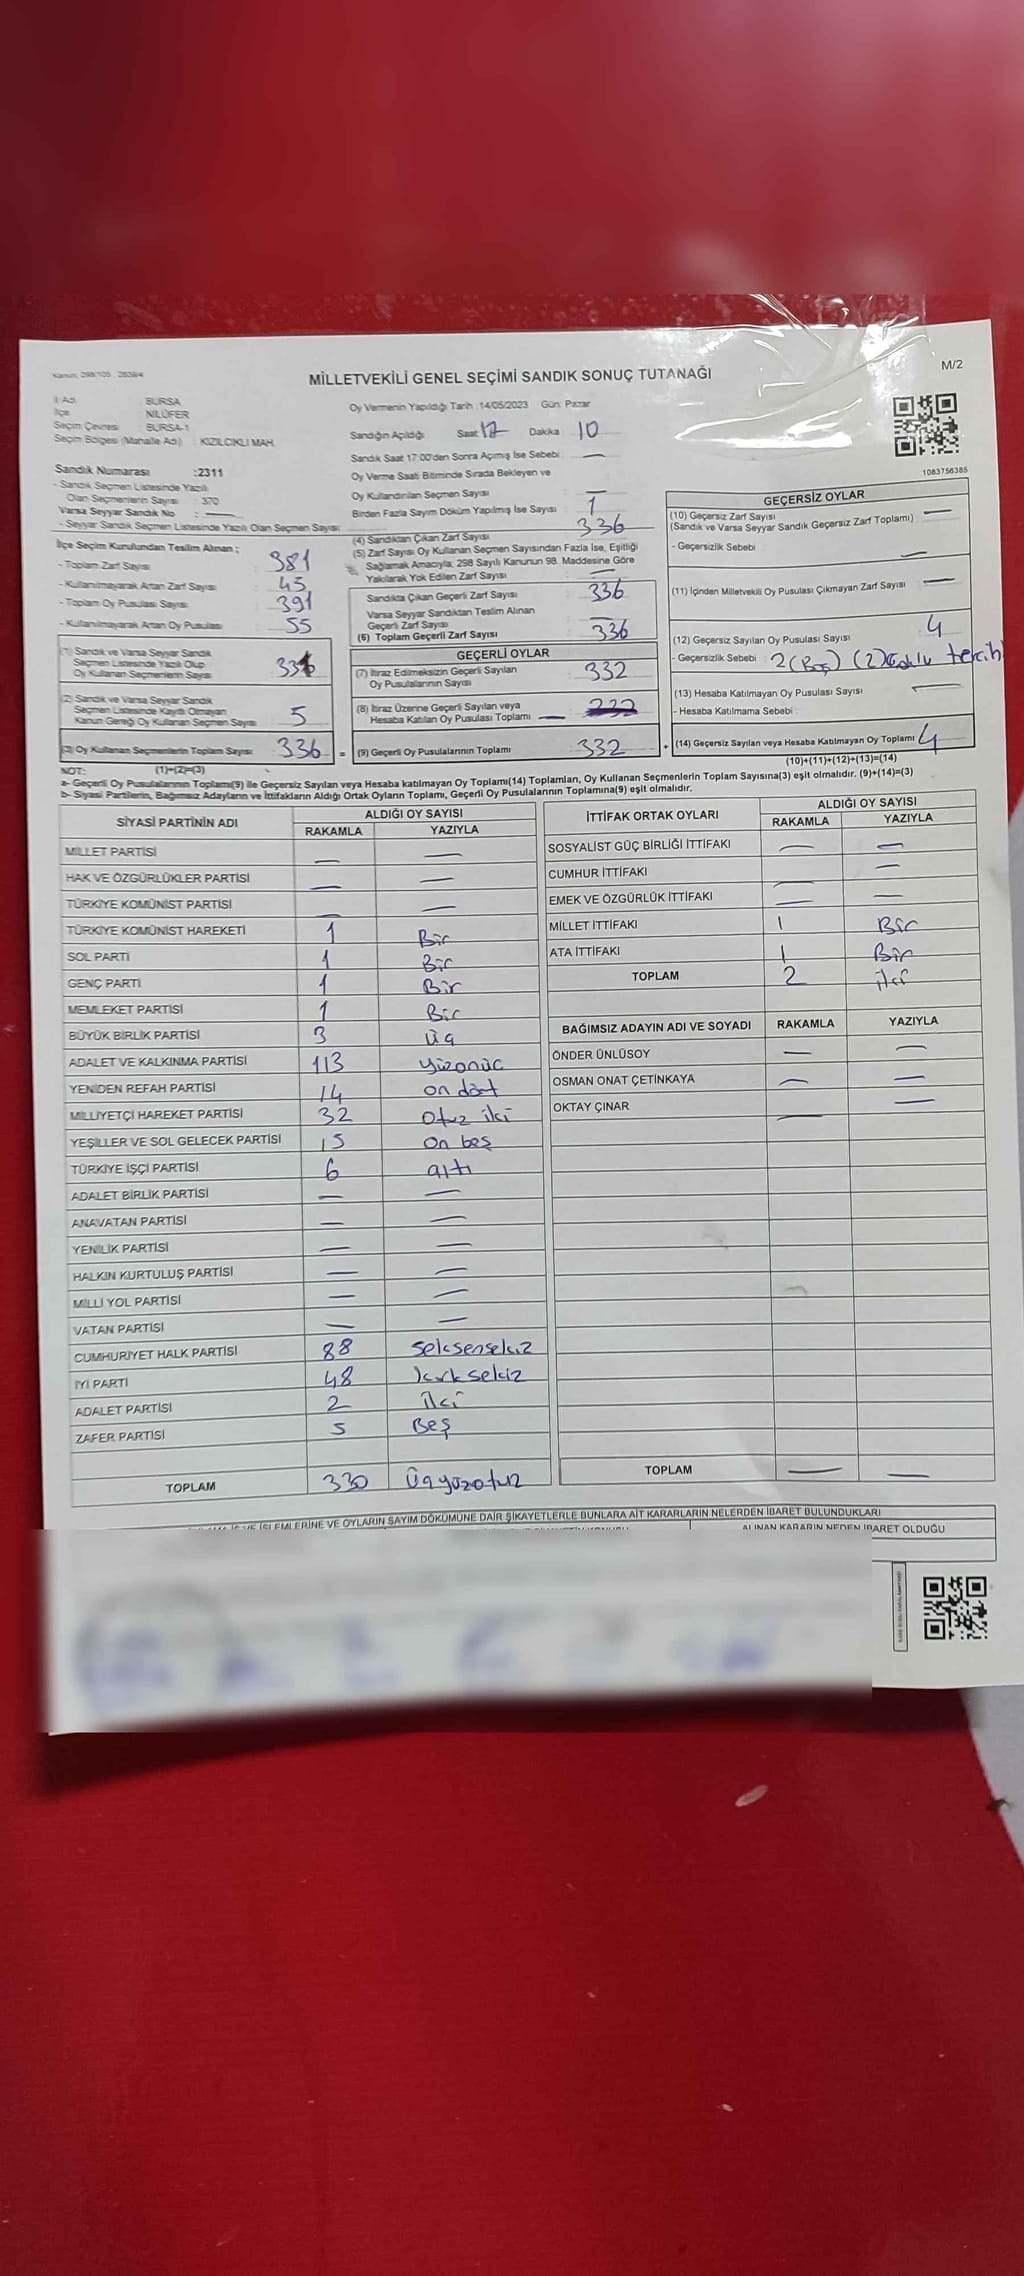 Kanun: 298/105 : 2839/4
M/2
MİLLETVEKİLİ GENEL SEÇİMİ SANDIK SONUÇ TUTANAĞI
İl Adı : BURSA
İlçe : NİLÜFER
Seçim Çevresi : BURSA-1
Seçim Bölgesi (Mahalle Adı) : KIZILCIKLI MAH.
Sandık Numarası :2311
- Sandık Seçmen Listesinde Yazılı
Olan Seçmenlerin Sayısı : 370
Varsa Seyyar Sandık No : —
- Seyyar Sandık Seçmen Listesinde Yazılı Olan Seçmen Sayısı:
Oy Vermenin Yapıldığı Tarih :14/05/2023 Gün: Pazar
Sandığın Açıldığı Saat 17 Dakika 10
Sandık Saat 17:00'den Sonra Açımış İse Sebebi : —
Oy Verme Saati Bitiminde Sırada Bekleyen ve
Oy Kullandırılan Seçmen Sayısı : —
Birden Fazla Sayım Döküm Yapılmış İse Sayısı : 1
1083756385
İlçe Seçim Kurulundan Teslim Alınan ;
- Toplam Zarf Sayısı : 381
- Kullanılmayarak Artan Zarf Sayısı : 45
- Toplam Oy Pusulası Sayısı : 391
- Kullanılmayarak Artan Oy Pusulası : 55
(1) Sandık ve Varsa Seyyar Sandık
Seçmen Listesinde Yazılı Olup
Oy Kullanan Seçmenlerin Sayısı : 331
(2) Sandık ve Varsa Seyyar Sandık
Seçmen Listesinde Kayıtlı Olmayan
Kanun Gereği Oy Kullanan Seçmen Sayısı : 5
(3) Oy Kullanan Seçmenlerin Toplam Sayısı : 336 =
(1)+(2)=(3)
(4) Sandıktan Çıkan Zarf Sayısı : 336
(5) Zarf Sayısı Oy Kullanan Seçmen Sayısından Fazla İse, Eşitliği
Sağlamak Amacıyla; 298 Sayılı Kanunun 98. Maddesine Göre
Yakılarak Yok Edilen Zarf Sayısı : —
Sandıkta Çıkan Geçerli Zarf Sayısı : 336
Varsa Seyyar Sandıktan Teslim Alınan
Geçerli Zarf Sayısı : —
(6) Toplam Geçerli Zarf Sayısı : 336
GEÇERLİ OYLAR
(7) İtiraz Edilmeksizin Geçerli Sayılan
Oy Pusulalarının Sayısı : 332
(8) İtiraz Üzerine Geçerli Sayılan veya
Hesaba Katılan Oy Pusulası Toplamı —
(9) Geçerli Oy Pusulalarının Toplamı : 332 +
GEÇERSİZ OYLAR
(10) Geçersiz Zarf Sayısı : —
(Sandık ve Varsa Seyyar Sandık Geçersiz Zarf Toplamı)
- Geçersizlik Sebebi : —
(11) İçinden Milletvekili Oy Pusulası Çıkmayan Zarf Sayısı : —
(12) Geçersiz Sayılan Oy Pusulası Sayısı : 4
- Geçersizlik Sebebi : 2 (Boş) (2) Çoklu tercih
(13) Hesaba Katılmayan Oy Pusulası Sayısı : —
- Hesaba Katılmama Sebebi :
(14) Geçersiz Sayılan veya Hesaba Katılmayan Oy Toplamı : 4
(10)+(11)+(12)+(13)=(14)
NOT:
a- Geçerli Oy Pusulalarının Toplamı(9) ile Geçersiz Sayılan veya Hesaba katılmayan Oy Toplamı(14) Toplamları, Oy Kullanan Seçmenlerin Toplam Sayısına(3) eşit olmalıdır. (9)+(14)=(3)
b- Siyasi Partilerin, Bağımsız Adayların ve İttifakların Aldığı Ortak Oyların Toplamı, Geçerli Oy Pusulalarının Toplamına(9) eşit olmalıdır.
SİYASİ PARTİNİN ADI ALDIĞI OY SAYISI
RAKAMLA YAZIYLA
MİLLET PARTİSİ — —
HAK VE ÖZGÜRLÜKLER PARTİSİ — —
TÜRKİYE KOMÜNİST PARTİSİ — —
TÜRKİYE KOMÜNİST HAREKETİ 1 Bir
SOL PARTİ 1 Bir
GENÇ PARTİ 1 Bir
MEMLEKET PARTİSİ 1 Bir
BÜYÜK BİRLİK PARTİSİ 3 Üç
ADALET VE KALKINMA PARTİSİ 113 yüzonüç
YENİDEN REFAH PARTİSİ 14 on dört
MİLLİYETÇİ HAREKET PARTİSİ 32 Otuz iki
YEŞİLLER VE SOL GELECEK PARTİSİ 15 on beş
TÜRKİYE İŞÇİ PARTİSİ 6 altı
ADALET BİRLİK PARTİSİ — —
ANAVATAN PARTİSİ — —
YENİLİK PARTİSİ — —
HALKIN KURTULUŞ PARTİSİ — —
MİLLİ YOL PARTİSİ — —
VATAN PARTİSİ — —
CUMHURİYET HALK PARTİSİ 88 seksensekiz
İYİ PARTİ 48 kırksekiz
ADALET PARTİSİ 2 iki
ZAFER PARTİSİ 5 Beş
TOPLAM 330 Üçyüzotuz
İTTİFAK ORTAK OYLARI ALDIĞI OY SAYISI
RAKAMLA YAZIYLA
SOSYALİST GÜÇ BİRLİĞİ İTTİFAKI — —
CUMHUR İTTİFAKI — —
EMEK VE ÖZGÜRLÜK İTTİFAKI — —
MİLLET İTTİFAKI 1 Bir
ATA İTTİFAKI 1 Bir
TOPLAM 2 iki
BAĞIMSIZ ADAYIN ADI VE SOYADI RAKAMLA YAZIYLA
ÖNDER ÜNLÜSOY — —
OSMAN ONAT ÇETİNKAYA — —
OKTAY ÇINAR — —
TOPLAM — —
İŞLEMLERİNE VE OYLARIN SAYIM DÖKÜMÜNE DAİR ŞİKAYETLERLE BUNLARA AİT KARARLARIN NELERDEN İBARET BULUNDUKLARI
ALINAN KARARIN NEDEN İBARET OLDUĞU